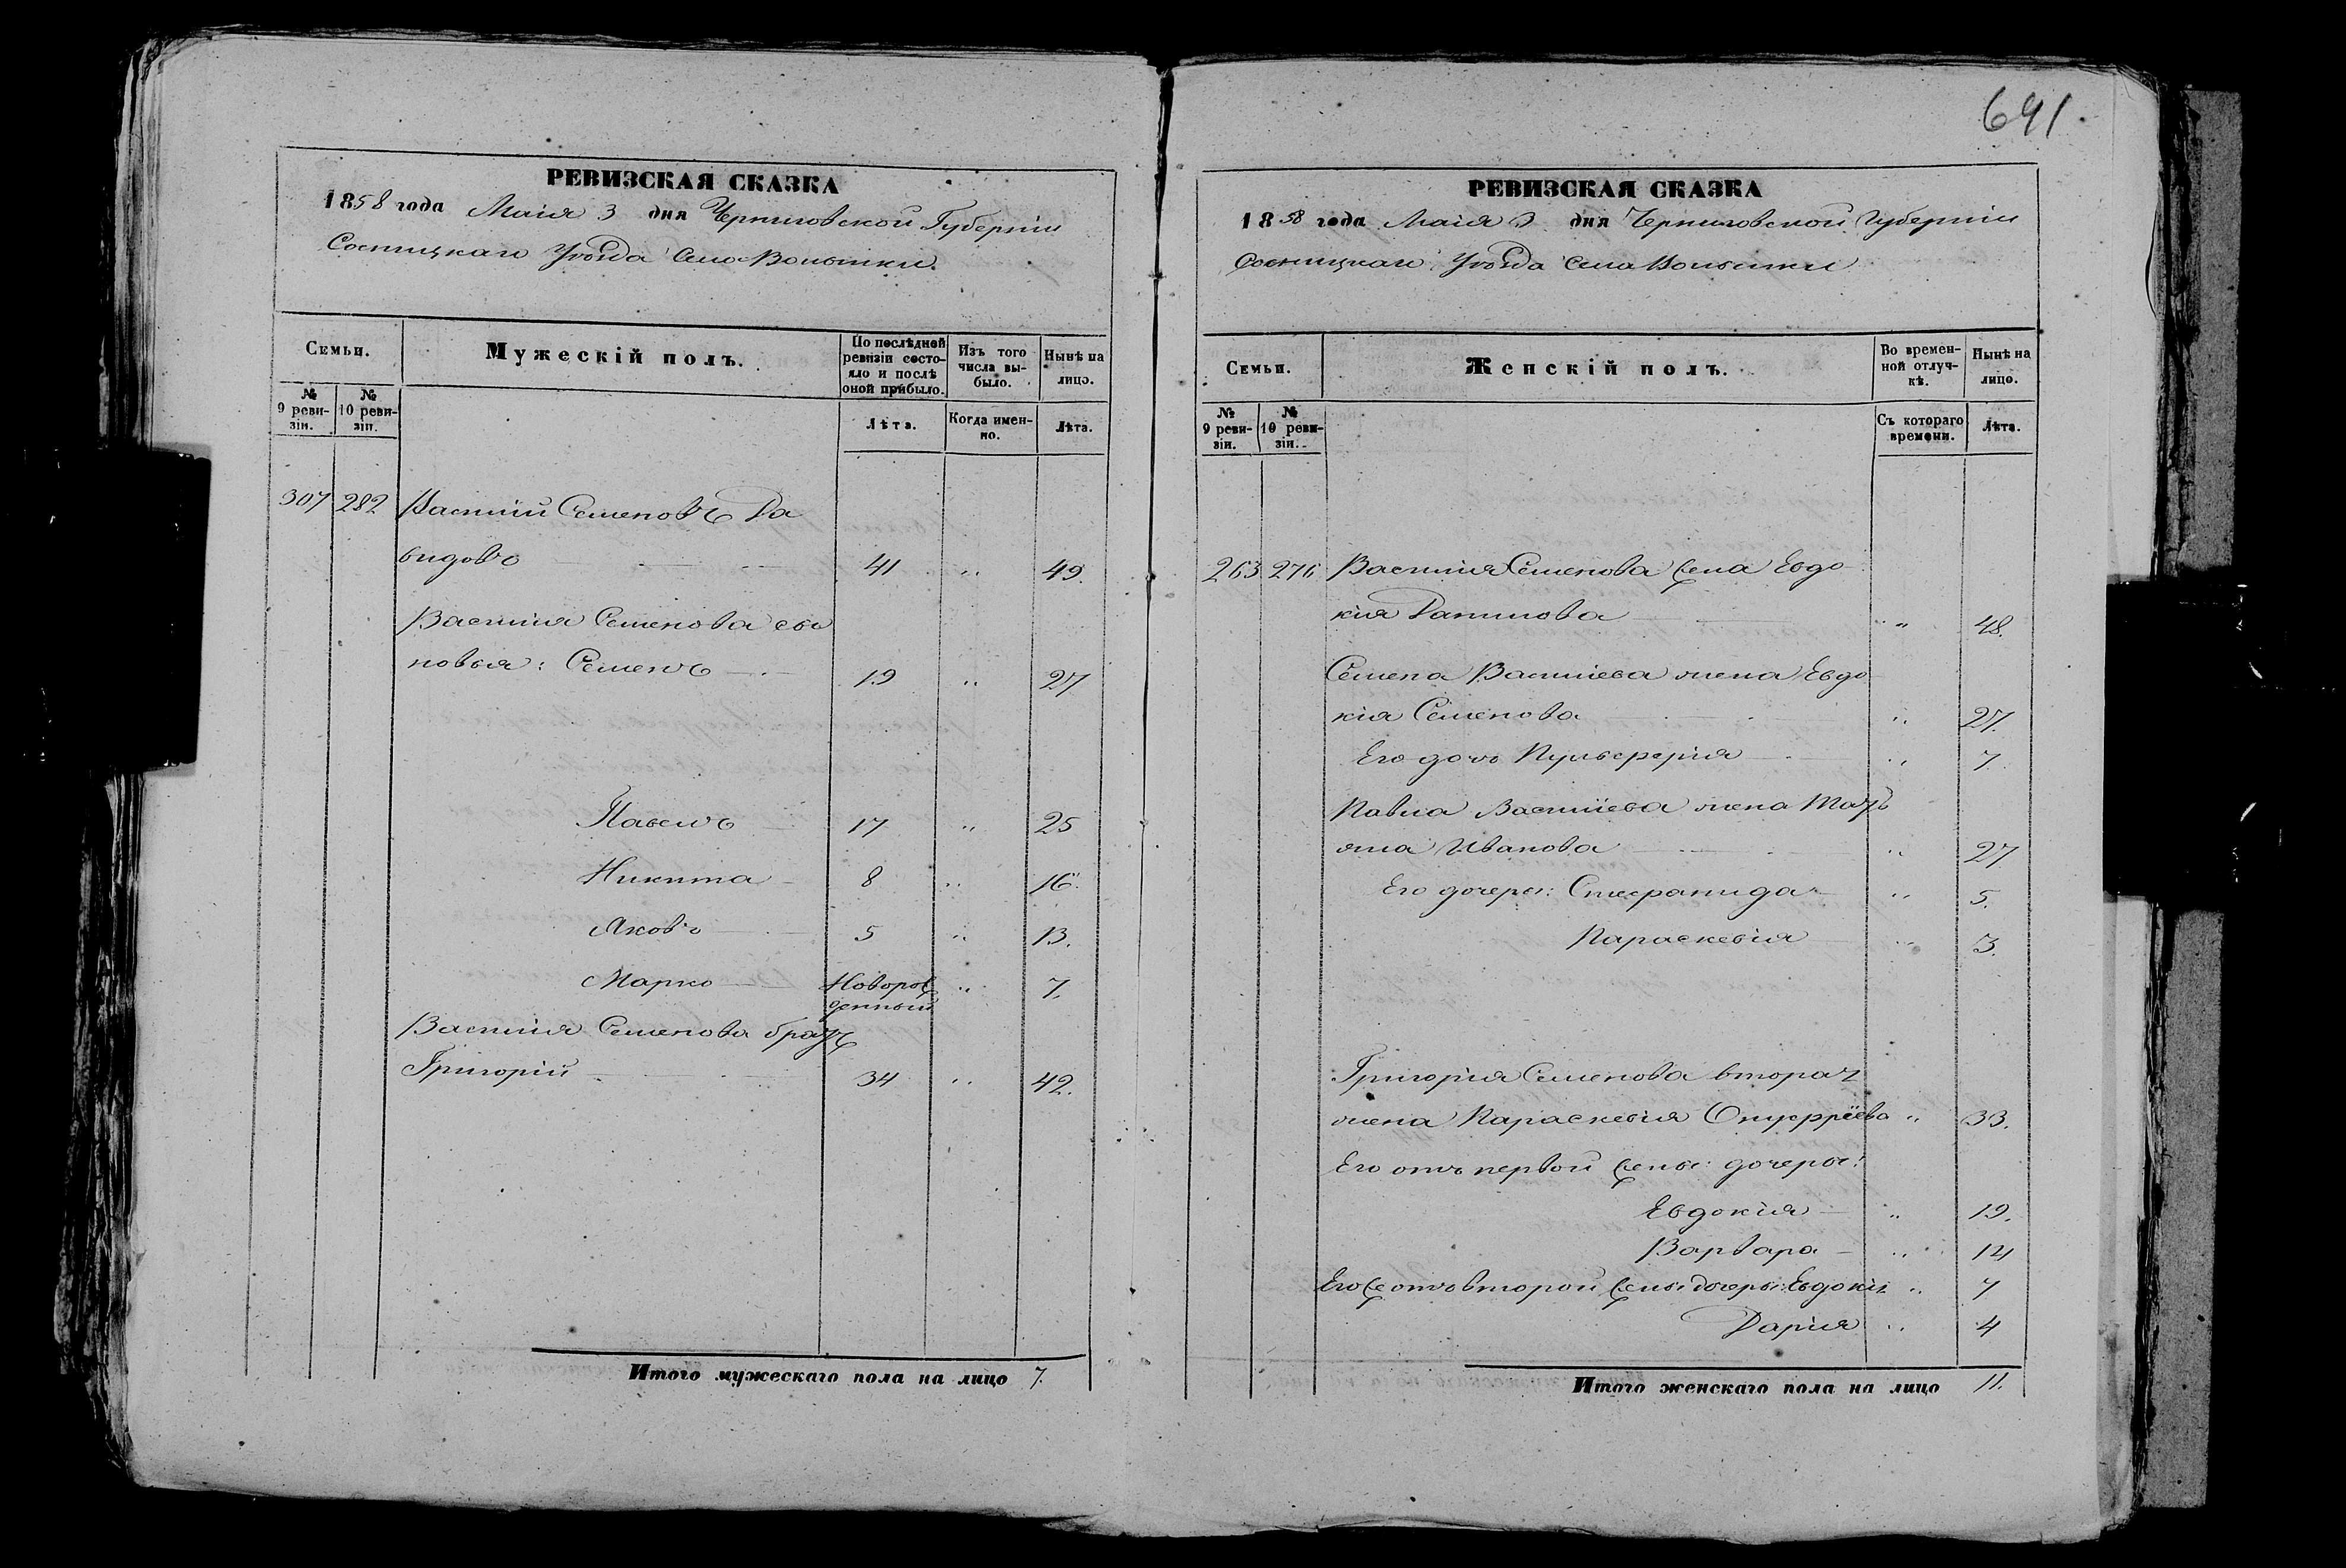 691.
РЕВИЗСКАЯ СКАЗКА
1858 года Маія 3 дня Черниговской Губерніи
Сосницкаго Уѣзда Села Волынки.
Семьи.
Мужескій полъ.
По послѣдней ревизіи состояло и послѣ оной прибыло.
Изъ того числа выбыло.
Нынѣ на лицо.
№ 9 ревизіи.
№ 10 ревизіи.
Лѣта.
Когда именно.
Лѣта.
307 282 Василій Семеновъ Да
видовъ 41 „ 49.
Василія Семенова сы
новья: Семенъ 19 „ 27
Павелъ 17 „ 25
Никита 8 „ 16.
Яковъ 5 „ 13.
Марко Новорож
денный „ 7.
Василія Семенова братъ
Григорій 34 „ 42.
Итого мужескаго пола на лицо 7.
РЕВИЗСКАЯ СКАЗКА
1858 года Маія 3 дня Черниговской Губерніи
Сосницкаго Уѣзда Села Волынки
Семьи.
Женскій полъ.
Во временной отлучкѣ.
Нынѣ на лицо.
№ 9 ревизіи.
№ 10 ревизіи.
Съ котораго времени.
Лѣта.
263 276 Василія Семенова жена Евдо
кія Данилова „ 48.
Семена Василіева жена Евдо
кія Семенова „ 27.
Его дочь Пульхерія „ 7.
Павла Василіева жена Тать
яна Иванова „ 27
Его дочеры: Стефанида „ 5.
Параскевія „ 3.
Григорія Семенова вторая
жена Параскевія Онуфріева „ 33.
Его отъ первой жены дочеры:
Евдокія „ 19.
Варвара „ 14
Его же отъ второй жены дочеры: Евдокія „ 7
Дарія „ 4
Итого женскаго пола на лицо 11.